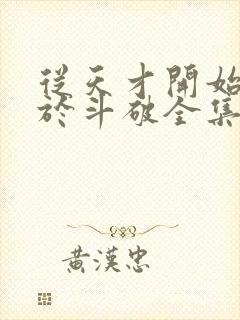 從天才開始
於斗破全集
黃漢忠